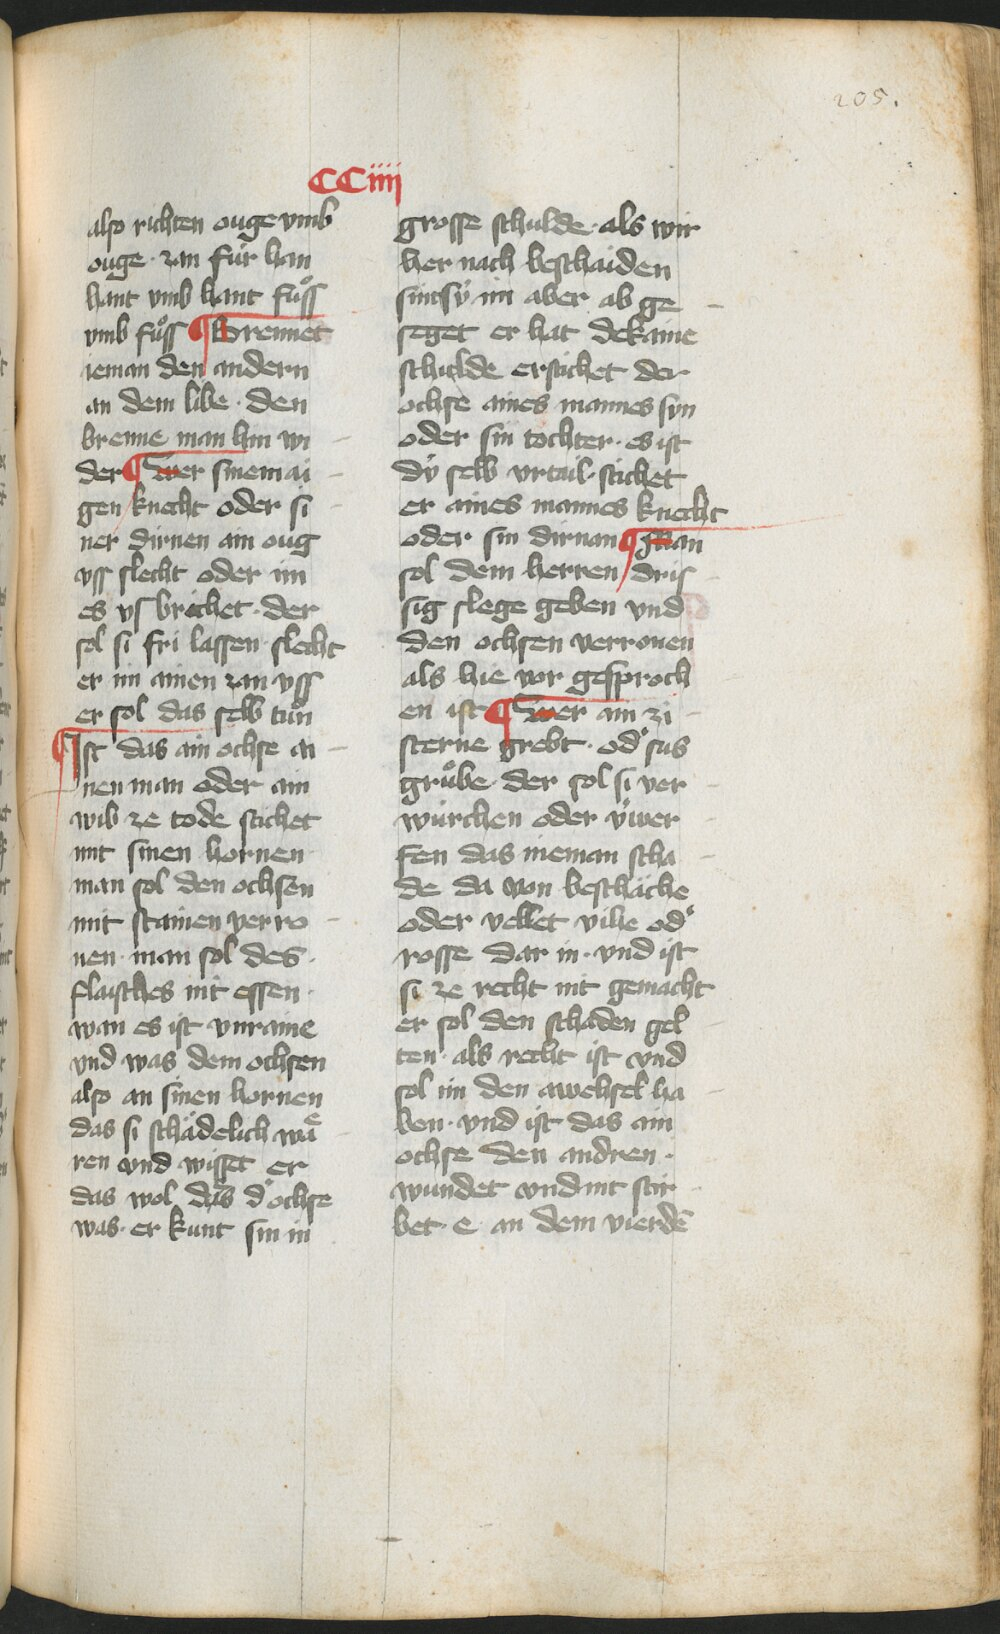 205.
CCiiij
also richten ouge vmb
ouge · zan für han
hant vmb hant fuͦſſ
vmb fuͦſſ ¶ Brennet
ieman den andern
an dem libe · den
brenne man hin wi
der ¶ Wer sinem ai
gen knecht oder si
ner dirnen ain oug
vſſ slecht oder im
es vſ brichet · der
sol si fri laſſen · slecht
er im ainen zan vſſ
er sol das selb tuͦn
¶ Ist das ain ochse ai
nen man oder ain
wib ze tode stichet
mit sinen hornen
man sol den ochsen
mit stainen verro
nen · man sol des ·
flaisches nit essen ·
wan es ist vnraine
vnd was dem ochsen
also an sinen hornen
das si schädelich waͤ
ren vnd wisset er
das wol das d' ochse
was · er kunt sin in
grosse schulde · als wir
her nach beschaiden
sint sÿ im aber ab ge
seget er hat dekaine
schulde erstichet der
ochse aines mannes syn
oder sin tochter · es ist
dÿ selb vrtail · stichet
er aines mannes knecht
oder sin dirnan ¶ Man
sol dem herren dris
sig slege geben vnd
den ochsen verronen
als hie vor gesproch
en ist ¶ Wer ain zi
sterne grebt · od' sus
gruͦbe · der sol si ver
würchen oder v̈wer
fen das nieman scha
de da von beschäche
oder vellet vihe od'
rosse dar in · vnd ist
si ze recht nit gemacht
er sol den schaden gel
ten · als recht ist vnd
sol im den awehsel ha
ben · vnd ist das ain
ochse den andren ·
wundet vnd mit stir
bet · e an dem vierdē